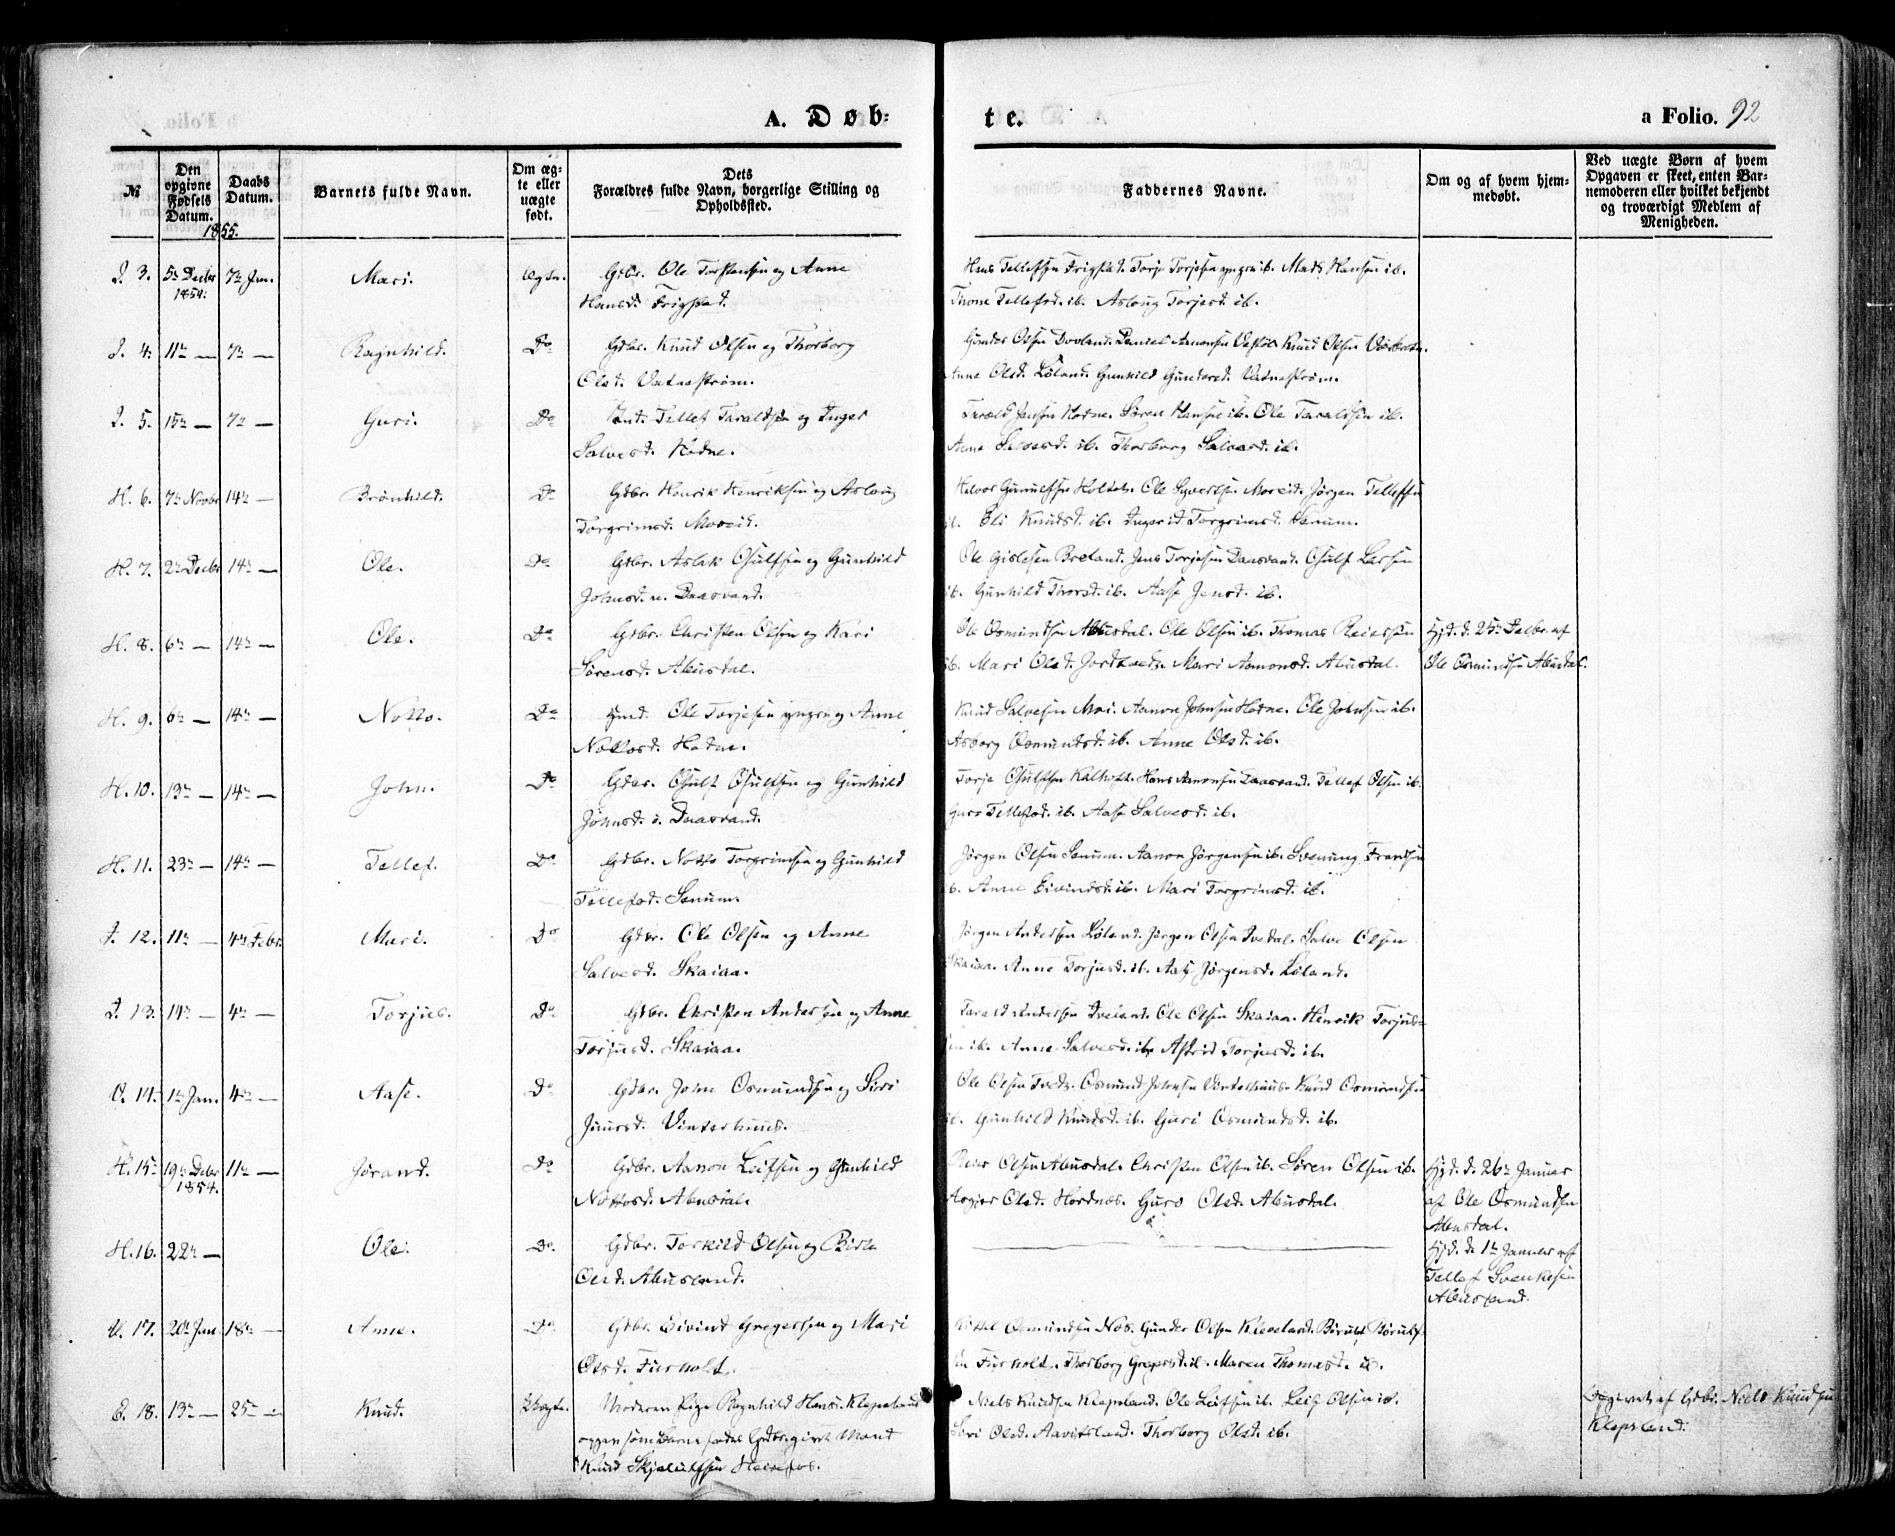 A. Døb-
te.
a Folio. 92
№
Den opgivne Fødsels Datum.
Daabs Datum.
Barnets fulde Navn.
Om ægte eller uægte født.
Dets Forældres fulde Navn, borgerlige Stilling og Opholdssted.
Faddernes Navne.
Om og af hvem hjemmedøbt.
Ved uægte Børn af hvem Opgaven er skeet, enten Barnemoderen eller hvilket bekjendt og troværdigt Medlem af Menigheden.
1855.
I. 3. 5te Decbr 7de Jan. Mari. Ægte. Gdbr. Ole Torstensen og Anne Hans Tellefsen Frigstad. Torje Torjesen yngre ib. Mads Hansen ib.
1854. Hansd. Frigstad. Thone Tellefsd. ib. Aslaug Torjesd. ib.
I. 4. 11te — 7de — Ragnhild. Do Gdbr. Knud Olsen og Thorborg Gunder Olsen Dovland. Daniel Aanonsen Vestøl. Knud Olsen
Olsd. Vatnestrøm. Anne Olsd. Løland. Gunhild Gundersd. Vatnestrøm.
I. 5. 15de — 7de — Guri. Do Tellef Taraldsen og Inger Tarald Jensen Hodne. Søren Hansen ib. Ole Taraldsen ib.
Salvesd. Hodne. Anne Salvesd. ib. Thorborg Salvesd. ib.
H. 6. 7de Novbr 14de — Brønhild. Do Gdbr. Henrik Henriksen og Aslaug Halvor Gunnulfsen Holtet. Ole Syvertsen Moseid. Jørgen Tellefsen
Torgrimsd. Moseid. ib. Eli Knudsd. ib. Ingerid Torgrimsd. Senum.
H. 7. 2de Decbr 14de — Ole. Do Gdbr. Aslak Osulfsen og Gunhild Ole Gislesen Breland. Jens Torjesen Daasvand. Osulf Larsen
Johnsd. n. Daasvand. ib. Gunhild Thorsd. ib. Aase Jensd. ib.
H. 8. 6te — 14de — Ole. Do Gdbr. Christen Olsen og Kari Ole Osmundsen Abusdal. Ole Olsen ib. Thomas Reiersen Hjd. d. 25de Decbr. af
Sørensd. Abusdal. ib. Mari Olsd. Mari Aanonsd. Abusdal. Ole Osmundsen Abusdal.
H. 9. 6te — 14de — Notto. Do Ole Torjesen yngre og Anne Knud Salvesen Moi. Aanon Johnsen Hodne. Ole Johnsen ib.
Nottosd. Hodne. Asborg Osmundsd. ib. Anne Olsd. ib.
H. 10. 13de — 14de — John. Do Gdbr. Osulf Osulfsen og Gunhild Torje Osulfsen Kalhovd. Hans Aanonsen Daasvand. Tellef Olsen ib.
Johnsd. ø. Daasvand. Guro Tellefsd. ib. Aase Salvesd. ib.
H. 11. 23de — 14de — Tellef. Do Gdbr. Notto Torgrimsen og Gunhild Jørgen Olsen Senum. Aanon Jørgensen ib. Svenung Frandsen
Tellefsd. Senum. ib. Anne Eivindsd. ib. Mari Torgrimsd. ib.
I. 12. 11te — 4de Febr. Mari. Do Gdbr. Ole Olsen og Anne Jørgen Andersen Løland. Jørgen Olsen Ivedal. Salve Olsen
Salvesd. Skaiaa. Skaiaa. Anne Torjusd. ib. Aase Jørgensd. Løland.
I. 13. 14de — 4de — Torjus. Do Gdbr. Christen Andersen og Anne Tarald Andersen Iveland. Ole Olsen Skaiaa. Henrik Torjus-
Torjusd. Skaiaa. sen ib. Anne Salvesd. ib. Astrid Torjusd. ib.
V. 14. 1ste Jan. 4de — Aase. Do Gdbr. John Osmundsen og Siri Ole Olsen Tvedt. Osmund Johnsen Vinterhuus. Knud Osmundsen
Juursd. Vinterhuus. ib. Gunhild Knudsd. ib. Guri Osmundsd. ib.
H. 15. 19de Debr 11te — Jørand. Do Gdbr. Aanon Leifsen og Gunhild Reier Olsen Abusdal. Christen Olsen ib. Søren Olsen ib. Hjd. d. 26de Januar
1854. Nottosd. Abusdal. Aagjer Olsd. Hordnæs. Guro Olsd. Abusdal. af Ole Osmundsen
Abusdal.
H. 16. 22de — Ole. Do Gdbr. Torkild Olsen og Birte Hjd. d. 1ste Januar af
Olsd. Abusland. Tellef Svenkesen
Abusland.
V. 17. 20de Jan 18de — Anne. Do Gdbr. Eivind Gregersen og Mari Kittel Osmundsen Naas. Gunder Olsen Kleveland. Børulf Børulf-
Olsd. Furholt. sen Furholt. Thorborg Gregersd. ib. Maren Thomasd. ib.
E. 18. 13de — 25de — Knud. Uægte. Moderen Pige Ragnhild Hansd. Klepsland Niels Knudsen Klepsland. Ole Leifsen ib. Leif Olsen ib. Opgivet af Gdbr. Niels Knudsen
opgav som Barnefader Gdbr. givt Mand Siri Olsd. Aavitsland. Thorborg Olsd. ib. Klepsland.
Knud Skjelulfsen